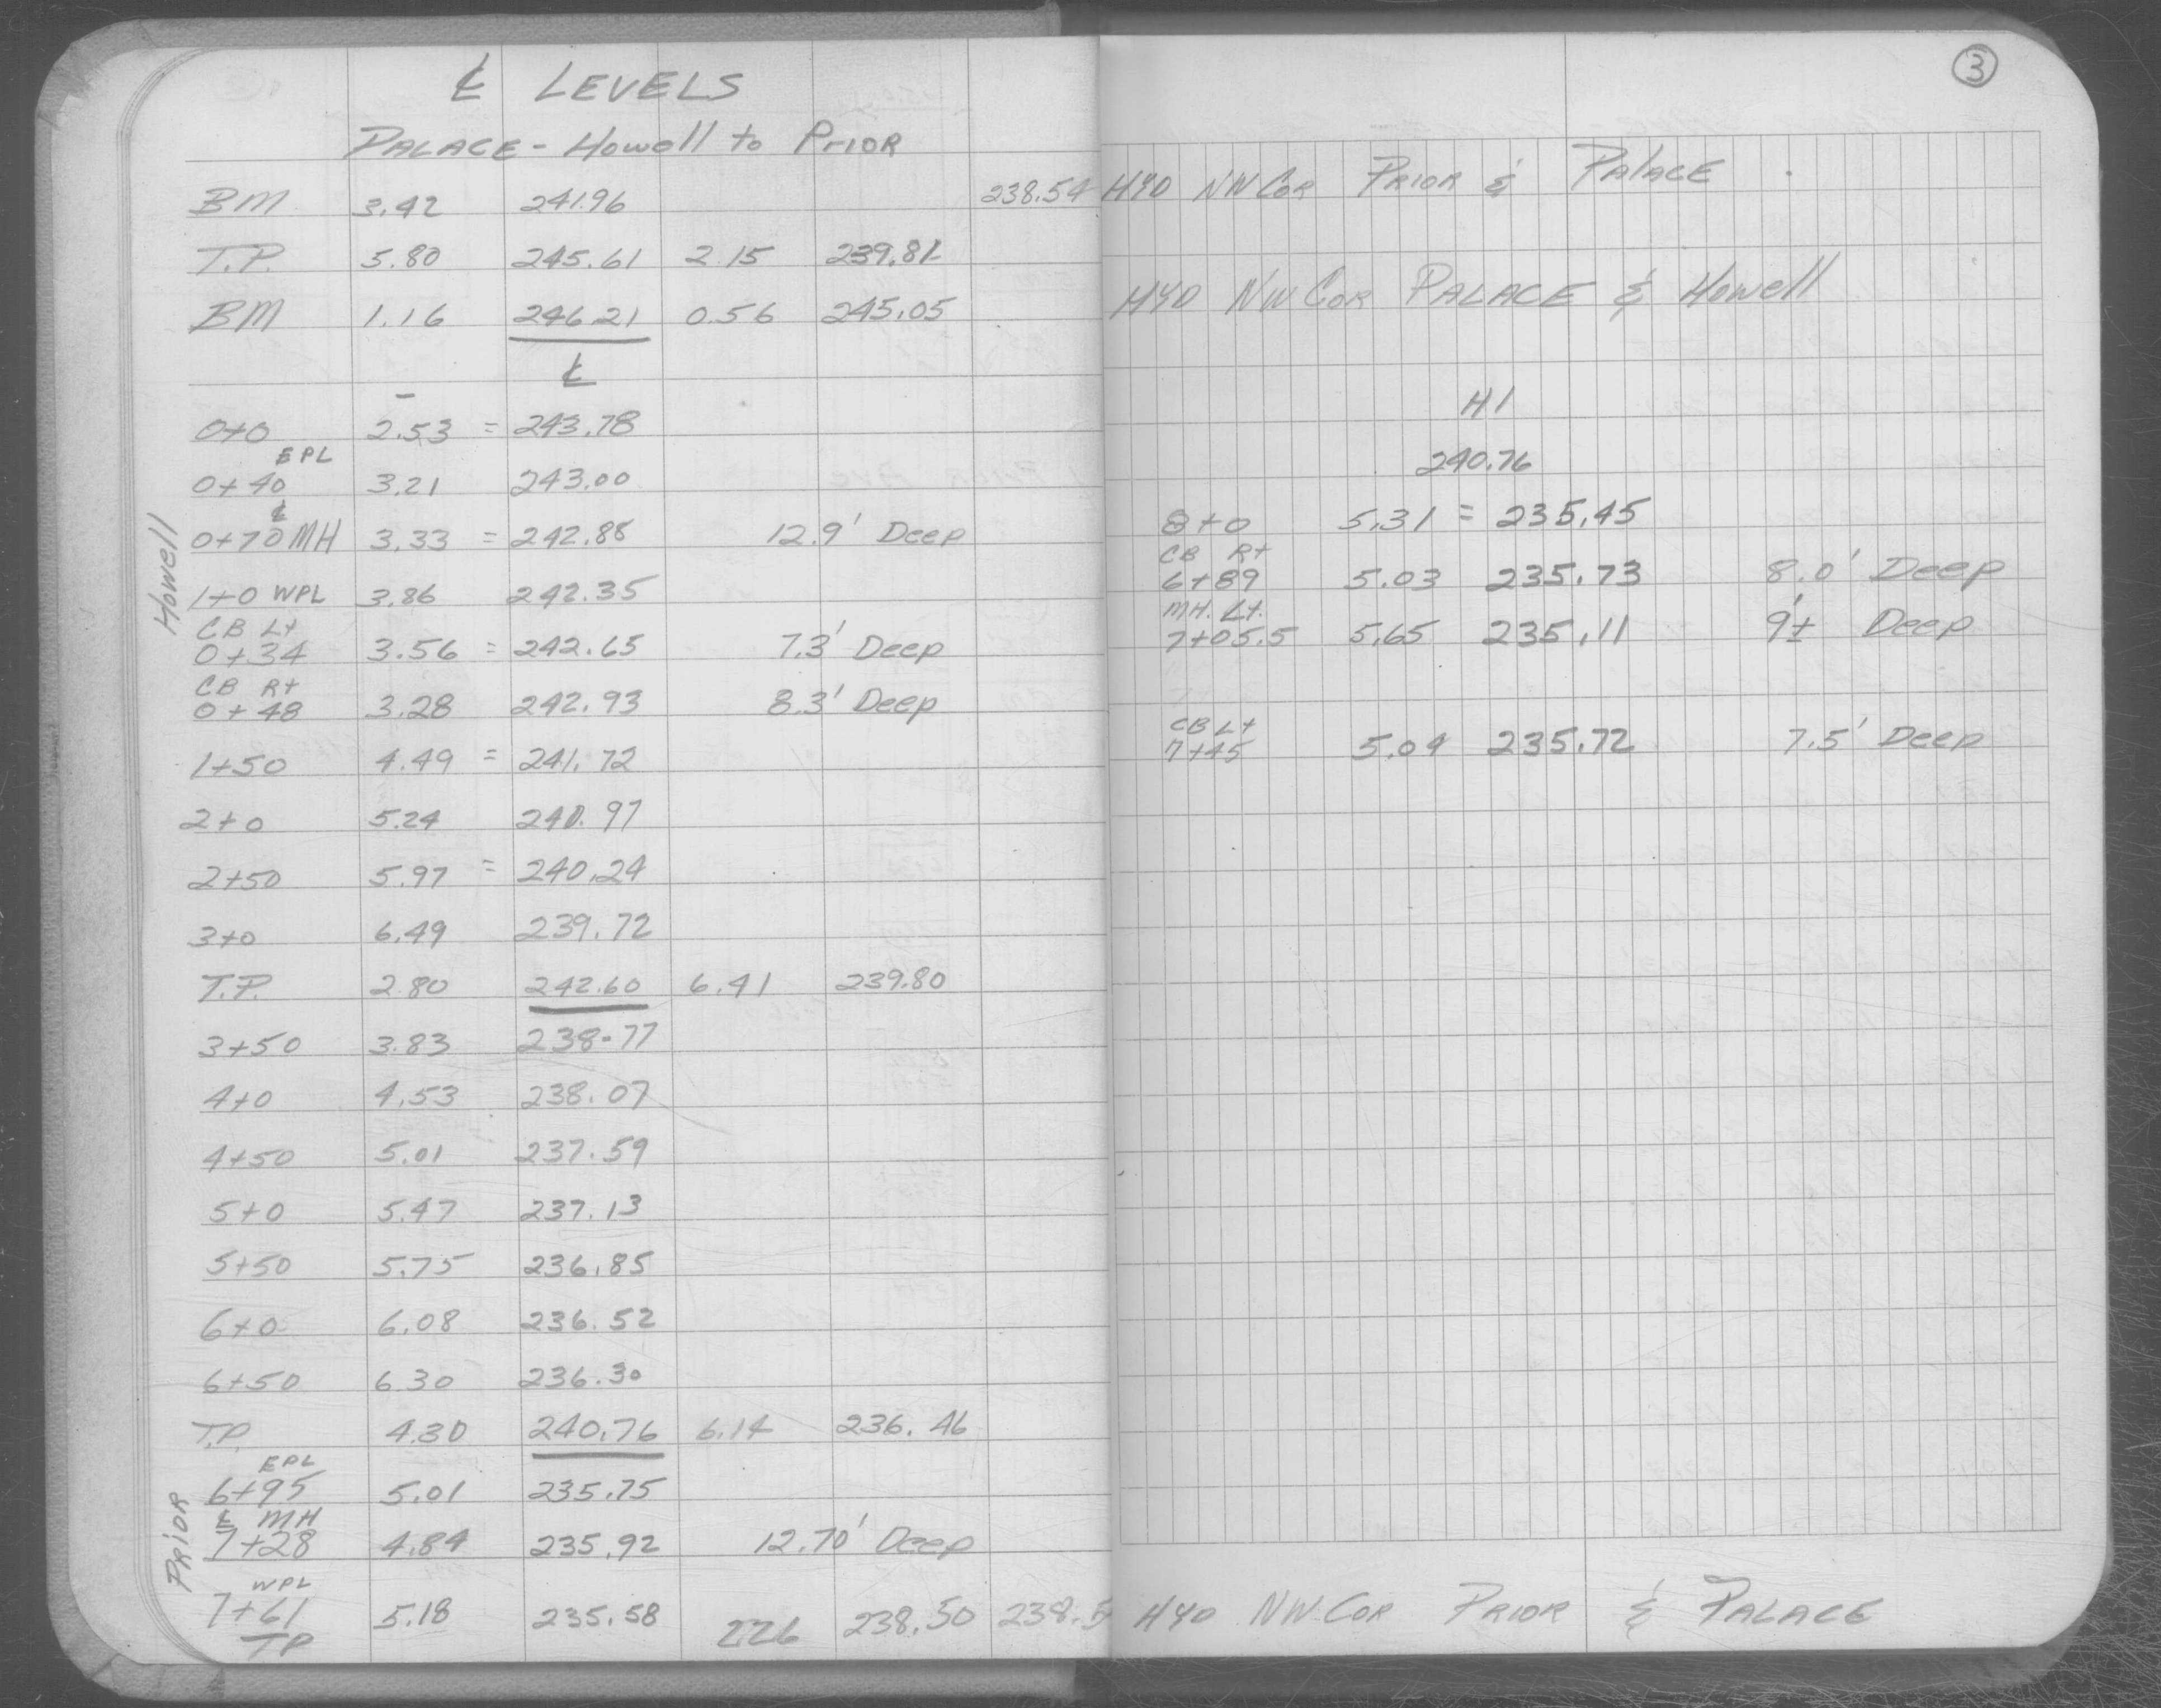 ℄ LEVELS
PALACE - Howell to PRIOR
BM 3.42 241.96 238.54
T.P. 5.80 245.61 2.15 239.81
BM 1.16 246.21 0.56 245.05
℄
-
0+0 2.53 = 243.78
EPL
0+40 3.21 243.00
℄
0+70 MH 3.33 = 242.88 12.9' Deep
Howell
1+0 WPL 3.86 242.35
CB Lt
0+34 3.56 = 242.65 7.3' Deep
CB Rt
0+48 3.28 242.93 8.3' Deep
1+50 4.49 = 241.72
2+0 5.24 240.97
2+50 5.97 = 240.24
3+0 6.49 239.72
T.P. 2.80 242.60 6.41 239.80
3+50 3.83 238.77
4+0 4.53 238.07
4+50 5.01 237.59
5+0 5.47 237.13
5+50 5.75 236.85
6+0 6.08 236.52
6+50 6.30 236.30
T.P. 4.30 240.76 6.14 236.46
EPL
6+95 5.01 235.75
℄ MH
7+28 4.84 235.92 12.70' Deep
PRIOR
WPL
7+61 5.18 235.58
TP 2.26 238.50 238.5
3
HYD NW COR PRIOR & PALACE
HYD NW COR PALACE & Howell
HI
240.76
8+0 5.31 = 235.45
CB Rt
6+89 5.03 235.73 8.0' Deep
MH. Lt.
7+05.5 5.65 235.11 9'± Deep
CB Lt
7+45 5.04 235.72 7.5' Deep
HYD NW. COR PRIOR & PALACE